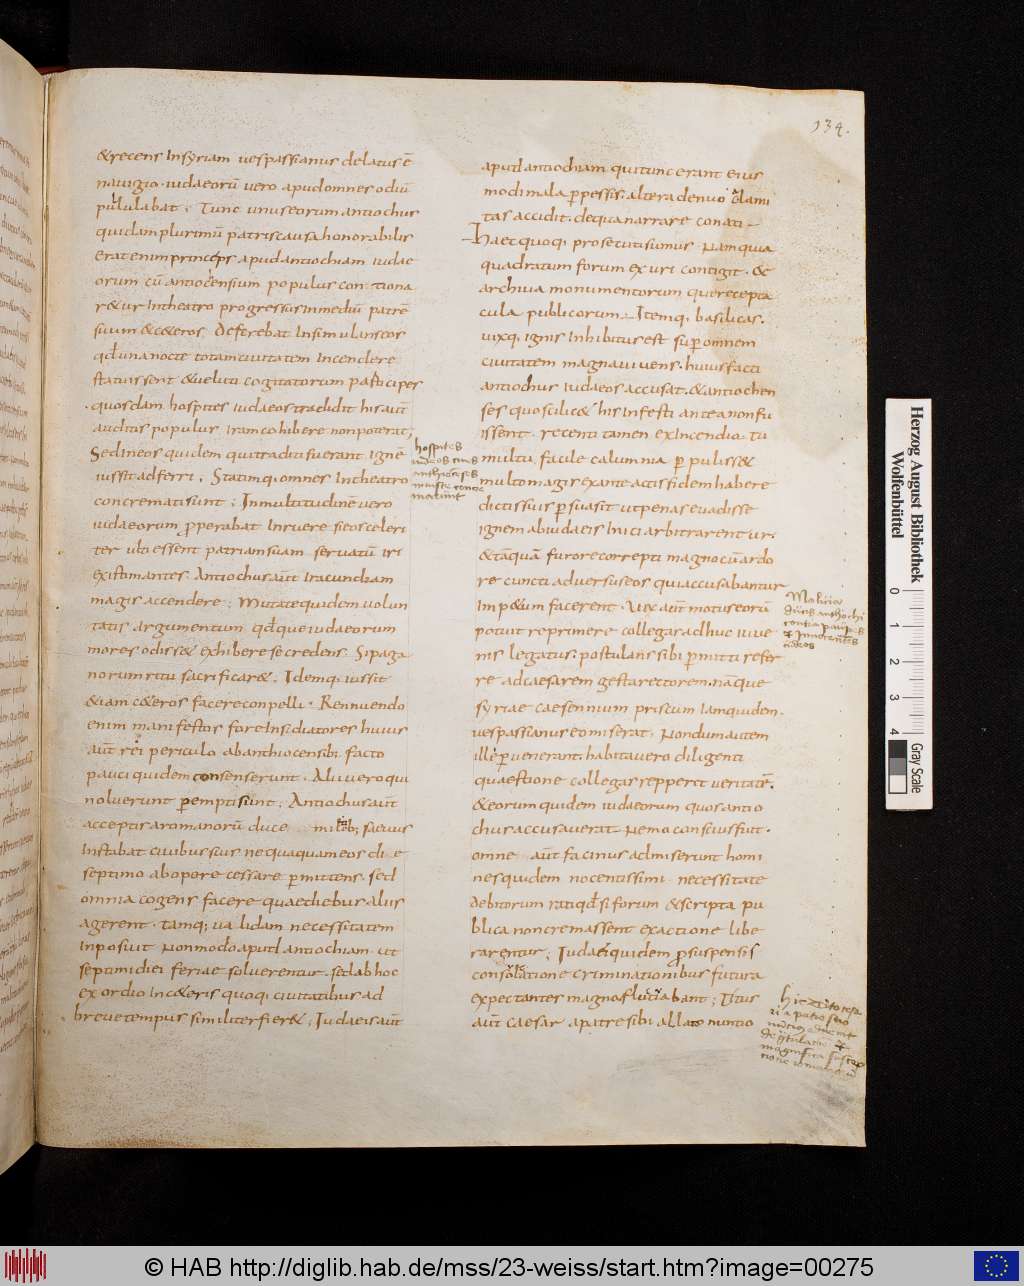 134.
& recens In syriam vespassianus delatus ē
navigio. iudaeorū vero apud omnes odiū
pullulabat. Tunc unus eorum antiochus
quidam plurimū patris causa honorabilis
erat enim princeps apud antiochiam iudae
orum cū antiochensium populus contiona
r&ur In theatro progressus In mediū patrē
suum & c&eros. deferebat Insimulans eos
qd una nocte totam civitatem Incendere
statuissent & veluti cogitatorum participes
quosdam hospites iudaeos tradidit his aut
auditis populus Iram cohibere non poterat;
Sed In eos quidem qui traditi fuerant ignē
iussit adferri. Statimq; omnes In theatro
concremati sunt; In multitudinē vero
iudaeorum properabat Inruere si eos celeri
ter ulti essent patriam suam servatū iri
existimantes. Antiochus aūt Iracundiam
magis accendere; Mutatae quidem volun
tatis argumentum qd que iudaeorum
mores odiss& exhibere se credens. Si paga
norum ritu sacrificar&. Idemq; iussit
& iam c&eros facere conpelli. Rennuendo
enim manifestos fore Insidiatores huius
aūt rei periculo ab anthiocensib; facto
pauci quidem consenserunt. Alii vero qui
noluerunt perempti sunt; Antiochus aūt
acceptis a romanorū duce militib; saevus
Instabat civibus suis nequaquam eos die
septimo ab opore cessare permittens. sed
omnia cogens facere quae diebus aliis
agerent. tamq; validam necessitatem
Inposuit ut non modo aput antiochiam. ut
septimi diei feriae solverentur. sed ab hoc
exordio In c&eris quoq; civitatibus ad
breve tempus similiter fier&; Iudaeis aūt
hospites
iudeos cives
anthiocēses
aput antiochiam qui tunc erant eius
modi mala perpessis. altera denuo calami
tas accidit. de qua narrare conati
Haec quoq; prosecuti sumus. Nam quia
quadratum forum exuri contigit. &
archiva monumentorum que recepta
cula publicorum. Itemq; basilicas.
vixq; ignis Inhibitus est super omnem
civitatem magna vi vens. huius facti
antiochus iudaeos accusat. & antiochen
ses quos ilic& his Infesti antea non fu
issent. recenti tamen ex Incendio tu
multu facile calumnia perpuliss&
multo magis ex ante actis fidem habere
dictis suis persuasit ut penas evadisse
ignem a biudaeis Inici arbitrarentur.
& tāquā furore correpti magno cū ardo
re cuncti adversus eos qui accusabantur
Imp&um facerent. Vix aūt motus eorū
potuit reprimere collegas adhuc iuve
nis legatus. postulans sibi permitti refer
re ad caesarem gesta rectorem. nāque
syriae caesennium priscum Iamquidem.
vespassianus eo miserat. Nondum autem
ille pervenerant. habita vero diligenti
quaestione collegas repperit veritatē.
& eorum quidem iudaeorum quos antio
chus accusaverat nemo conscius fuit.
omne aūt facinus admiserunt homi
nes quidem nocentissimi necessitate
debitorum rati qd si forum & scripta pu
blica non cremassent exactione libe
rarentur. Iudaei quidem prosuspensis
consolatione criminationibus futura
expectantes magno fluctuabant; Titus
aūt caesar a patre sibi allato nuntio